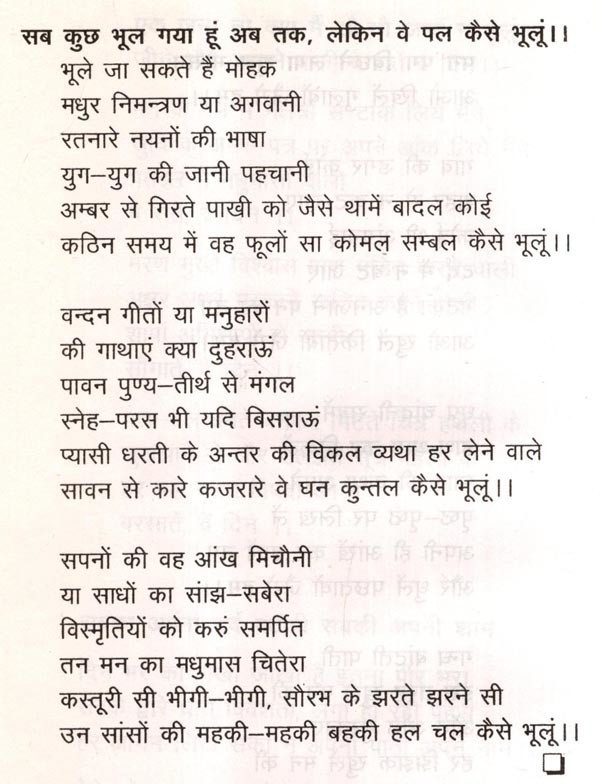 सब कुछ भूल गया हूं अब तक, लेकिन वे पल कैसे भूलूं।।
भूले जा सकते हैं मोहक
मधुर निमन्त्रण या अगवानी
रतनारे नयनों की भाषा
युग–युग की जानी पहचानी
अम्बर से गिरते पाखी को जैसे थामें बादल कोई
कठिन समय में वह फूलों सा कोमल सम्बल कैसे भूलूं।।
वन्दन गीतों या मनुहारों
की गाथाएं क्या दुहराऊं
पावन पुण्य–तीर्थ से मंगल
स्नेह–परस भी यदि बिसराऊं
प्यासी धरती के अन्तर की विकल व्यथा हर लेने वाले
सावन से कारे कजरारे वे घन कुन्तल कैसे भूलूं।।
सपनों की वह आंख मिचौनी
या साधों का सांझ–सबेरा
विस्मृतियों को करुं समर्पित
तन मन का मधुमास चितेरा
कस्तूरी सी भीगी–भीगी, सौरभ के झरते झरने सी
उन सांसों की महकी–महकी बहकी हल चल कैसे भूलूं।।